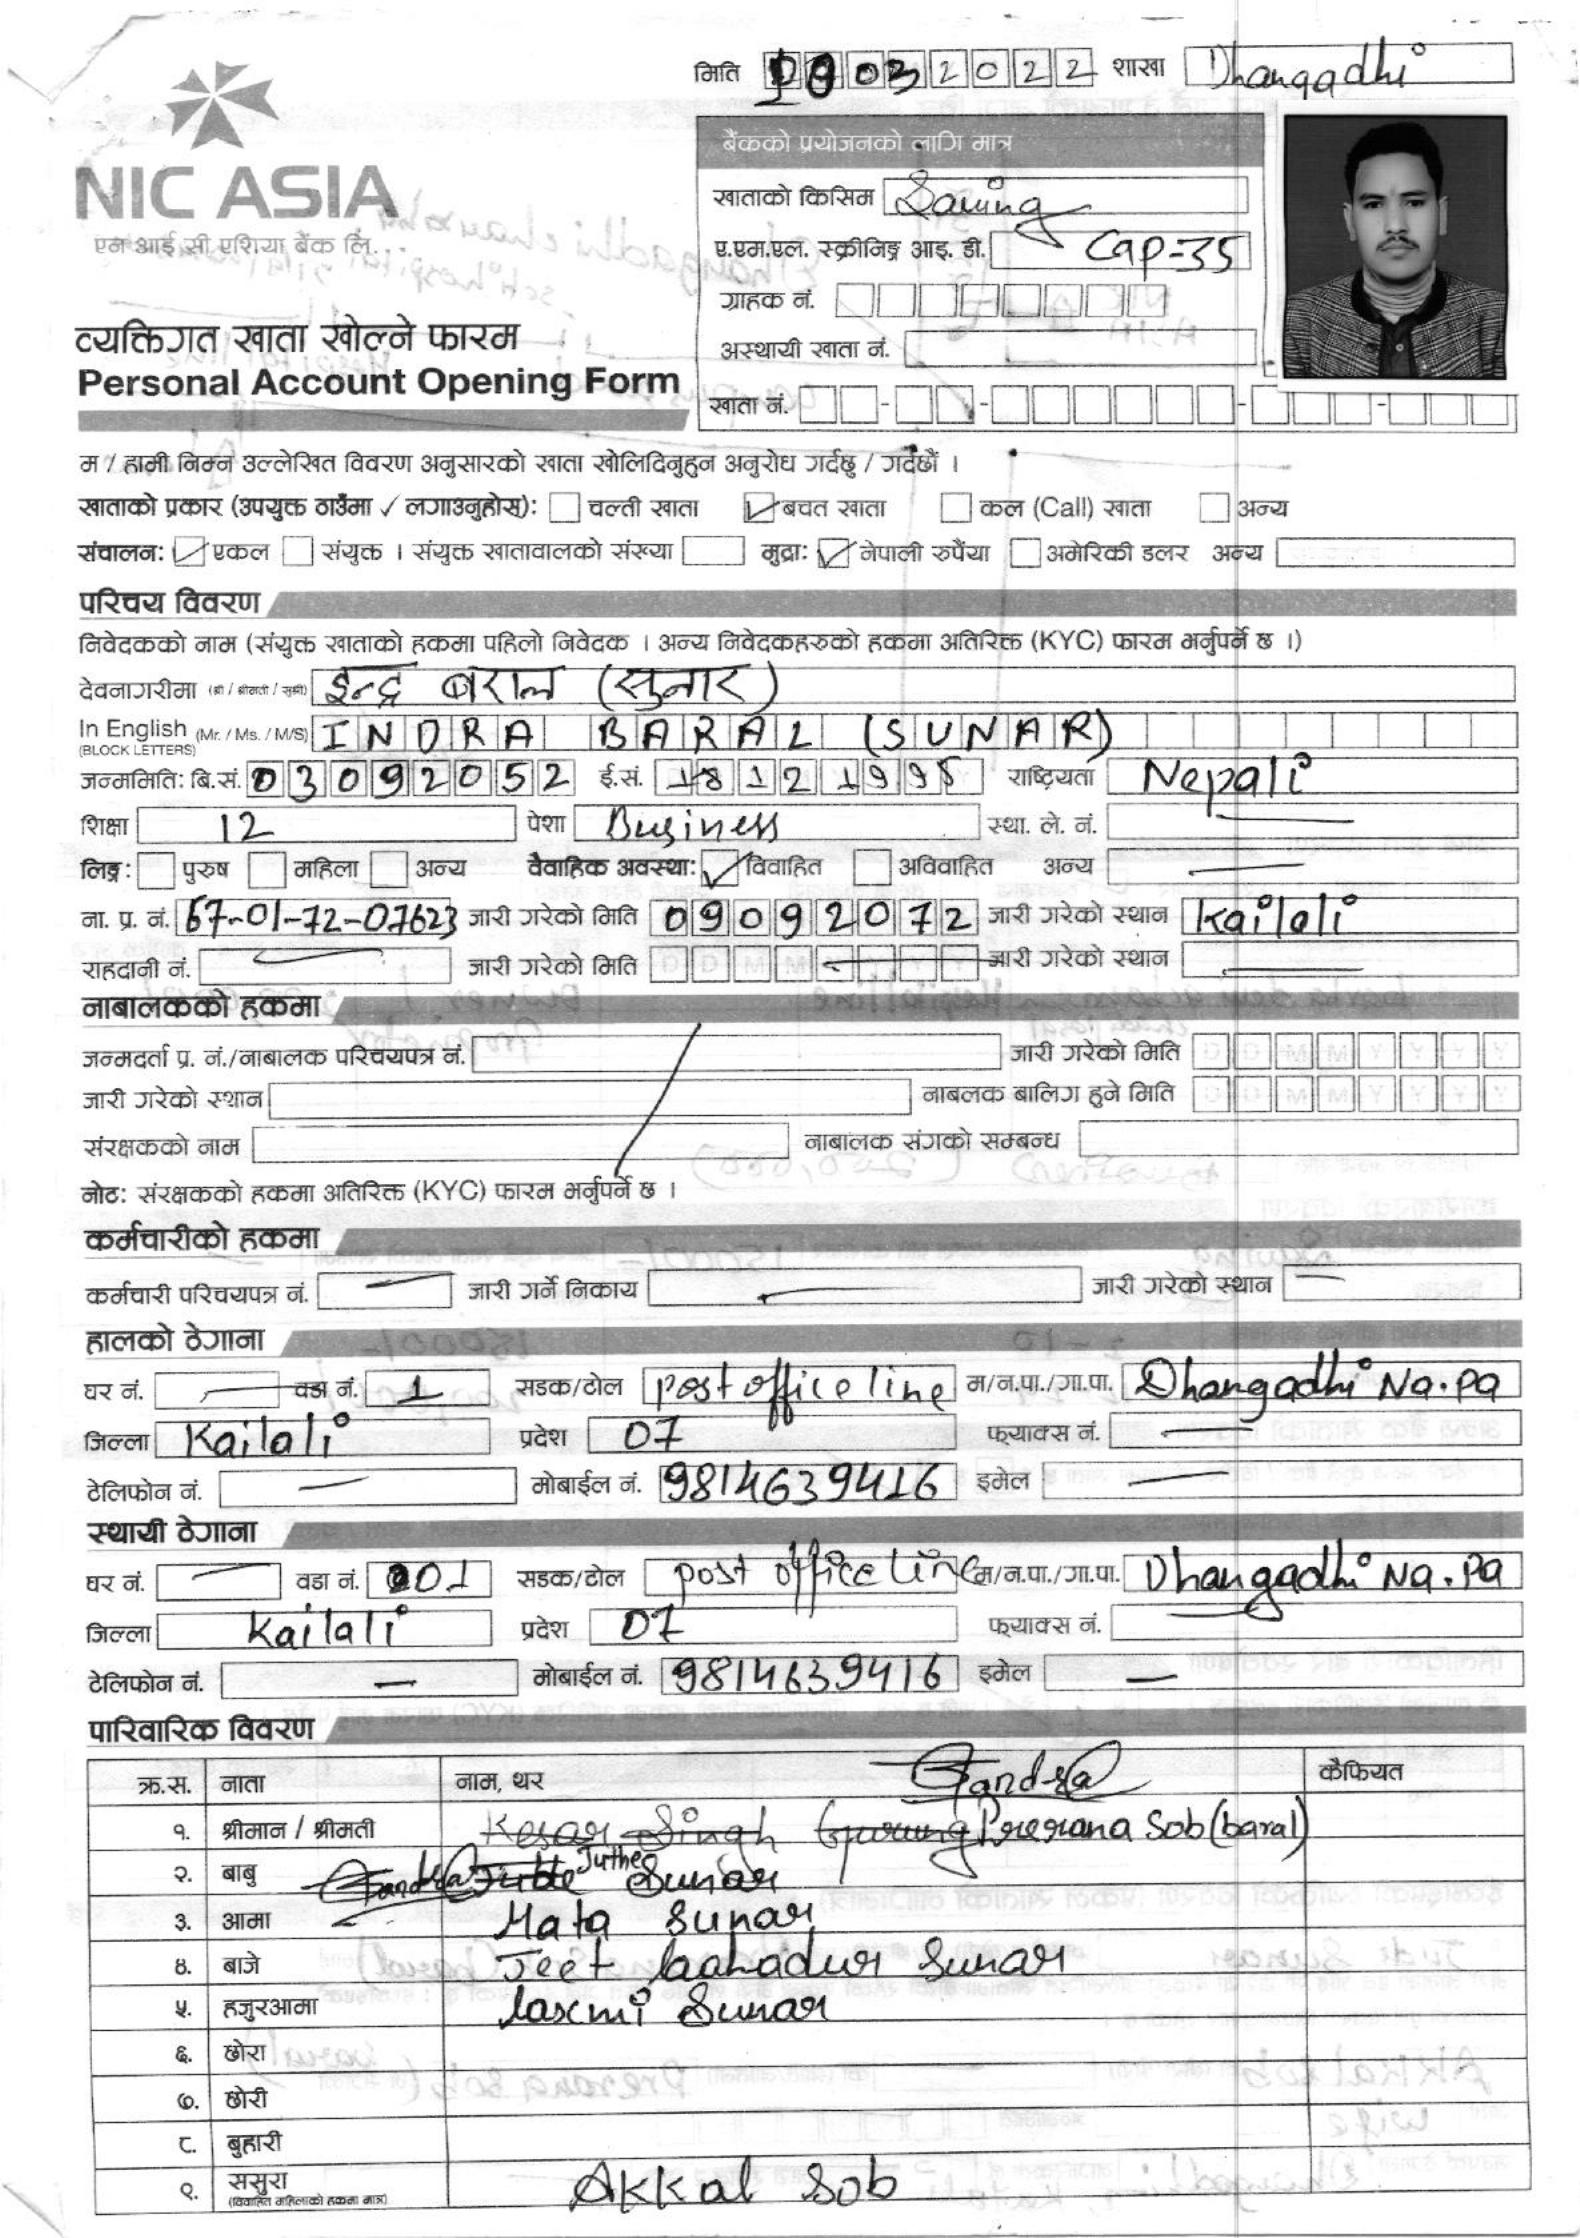 मिति 10032022 शाखा Dhangadhi
NIC ASIA
एन आई सी एशिया बैंक लि.
बैंकको प्रयोजनको लागि मात्र
खाताको किसिम Saving
ए.एम.एल. स्क्रीनिङ्ग आइ. डी. Cap=35
ग्राहक नं.
अस्थायी खाता नं.
खाता नं.
व्यक्तिगत खाता खोल्ने फारम
Personal Account Opening Form
म / हामी निम्न उल्लेखित विवरण अनुसारको खाता खोलिदिनुहुन अनुरोध गर्दछु / गर्दछौं ।
खाताको प्रकार (उपयुक्त ठाउँमा ✓ लगाउनुहोस्): चल्ती खाता ✓ बचत खाता कल (Call) खाता अन्य
संचालन: ✓ एकल संयुक्त । संयुक्त खातावालको संख्या मुद्रा: ✓ नेपाली रुपैंया अमेरिकी डलर अन्य
परिचय विवरण
निवेदकको नाम (संयुक्त खाताको हकमा पहिलो निवेदक । अन्य निवेदकहरुको हकमा अतिरिक्त (KYC) फारम भर्नुपर्ने छ ।)
देवनागरीमा (श्री / श्रीमती / सुश्री) इन्द्र बराल (सुनार)
In English (Mr. / Ms. / M/S) INDRA BARAL (SUNAR)
(BLOCK LETTERS)
जन्ममिति: बि.सं. 03092052 ई.सं. 18121995 राष्ट्रियता Nepali
शिक्षा 12 पेशा Business स्था. ले. नं.
लिङ्ग: पुरुष महिला अन्य वैवाहिक अवस्था: ✓ विवाहित अविवाहित अन्य
ना. प्र. नं. 67-01-72-07623 जारी गरेको मिति 09092072 जारी गरेको स्थान Kailali
राहदानी नं. जारी गरेको मिति जारी गरेको स्थान
नाबालकको हकमा
जन्मदर्ता प्र. नं./नाबालक परिचयपत्र नं. जारी गरेको मिति
जारी गरेको स्थान नाबलक बालिग हुने मिति
संरक्षकको नाम नाबालक संगको सम्बन्ध
नोट: संरक्षकको हकमा अतिरिक्त (KYC) फारम भर्नुपर्ने छ ।
कर्मचारीको हकमा
कर्मचारी परिचयपत्र नं. जारी गर्ने निकाय जारी गरेको स्थान
हालको ठेगाना
घर नं. वडा नं. 1 सडक/टोल post office line म/न.पा./गा.पा. Dhangadhi Na.pa
जिल्ला Kailali प्रदेश 07 फ्याक्स नं.
टेलिफोन नं. मोबाईल नं. 9814639416 इमेल
स्थायी ठेगाना
घर नं. वडा नं. 001 सडक/टोल post office line म/न.पा./गा.पा. Dhangadhi Na.pa
जिल्ला Kailali प्रदेश 07 फ्याक्स नं.
टेलिफोन नं. मोबाईल नं. 9814639416 इमेल
पारिवारिक विवरण
क्र.स. नाता नाम, थर कैफियत
१. श्रीमान / श्रीमती Kesar Singh Gurung Prerana Sob (baral)
२. बाबु Juthe Sunar
३. आमा Mata Sunar
४. बाजे Jeet bahadur Sunar
५. हजुरआमा laxmi Sunar
६. छोरा
७. छोरी
८. बुहारी
९. ससुरा Akkal Sob
(विवाहित महिलाको हकमा मात्र)